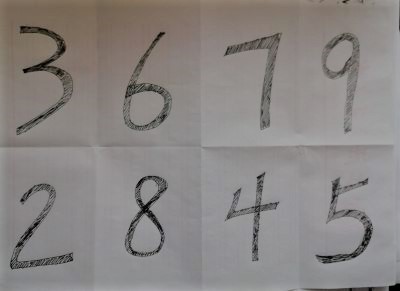 3 6 7 9
2 8 4 5